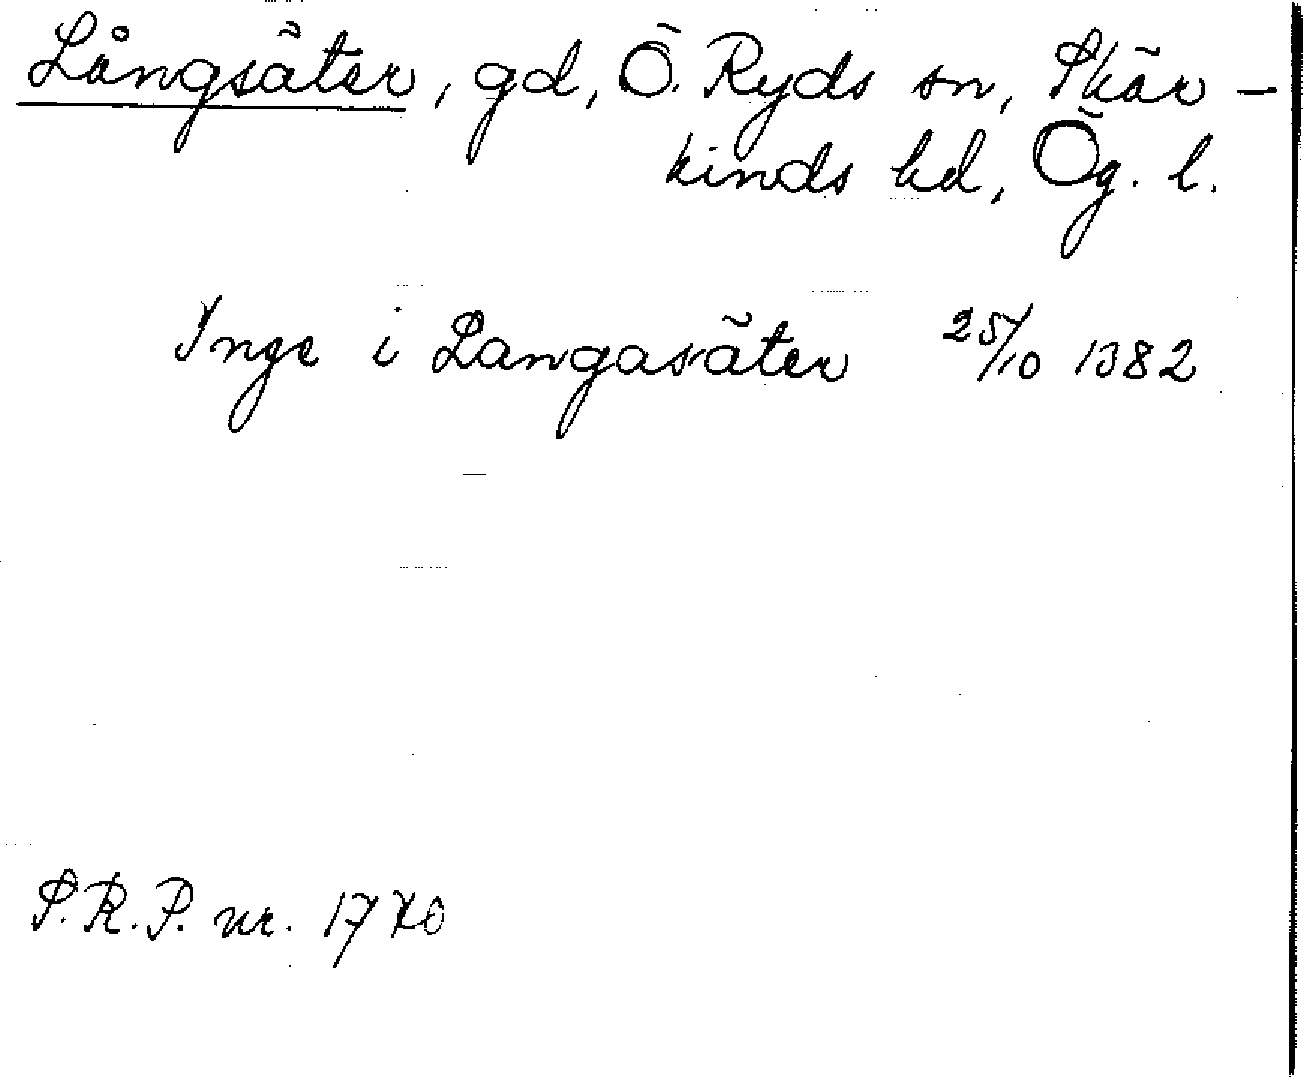 Långsäter, gd, Ö. Ryds sn, Skär-
kinds hd, Ög. l.
Inge i Langasäter 25/10 1382
S.R.P. nr. 1770